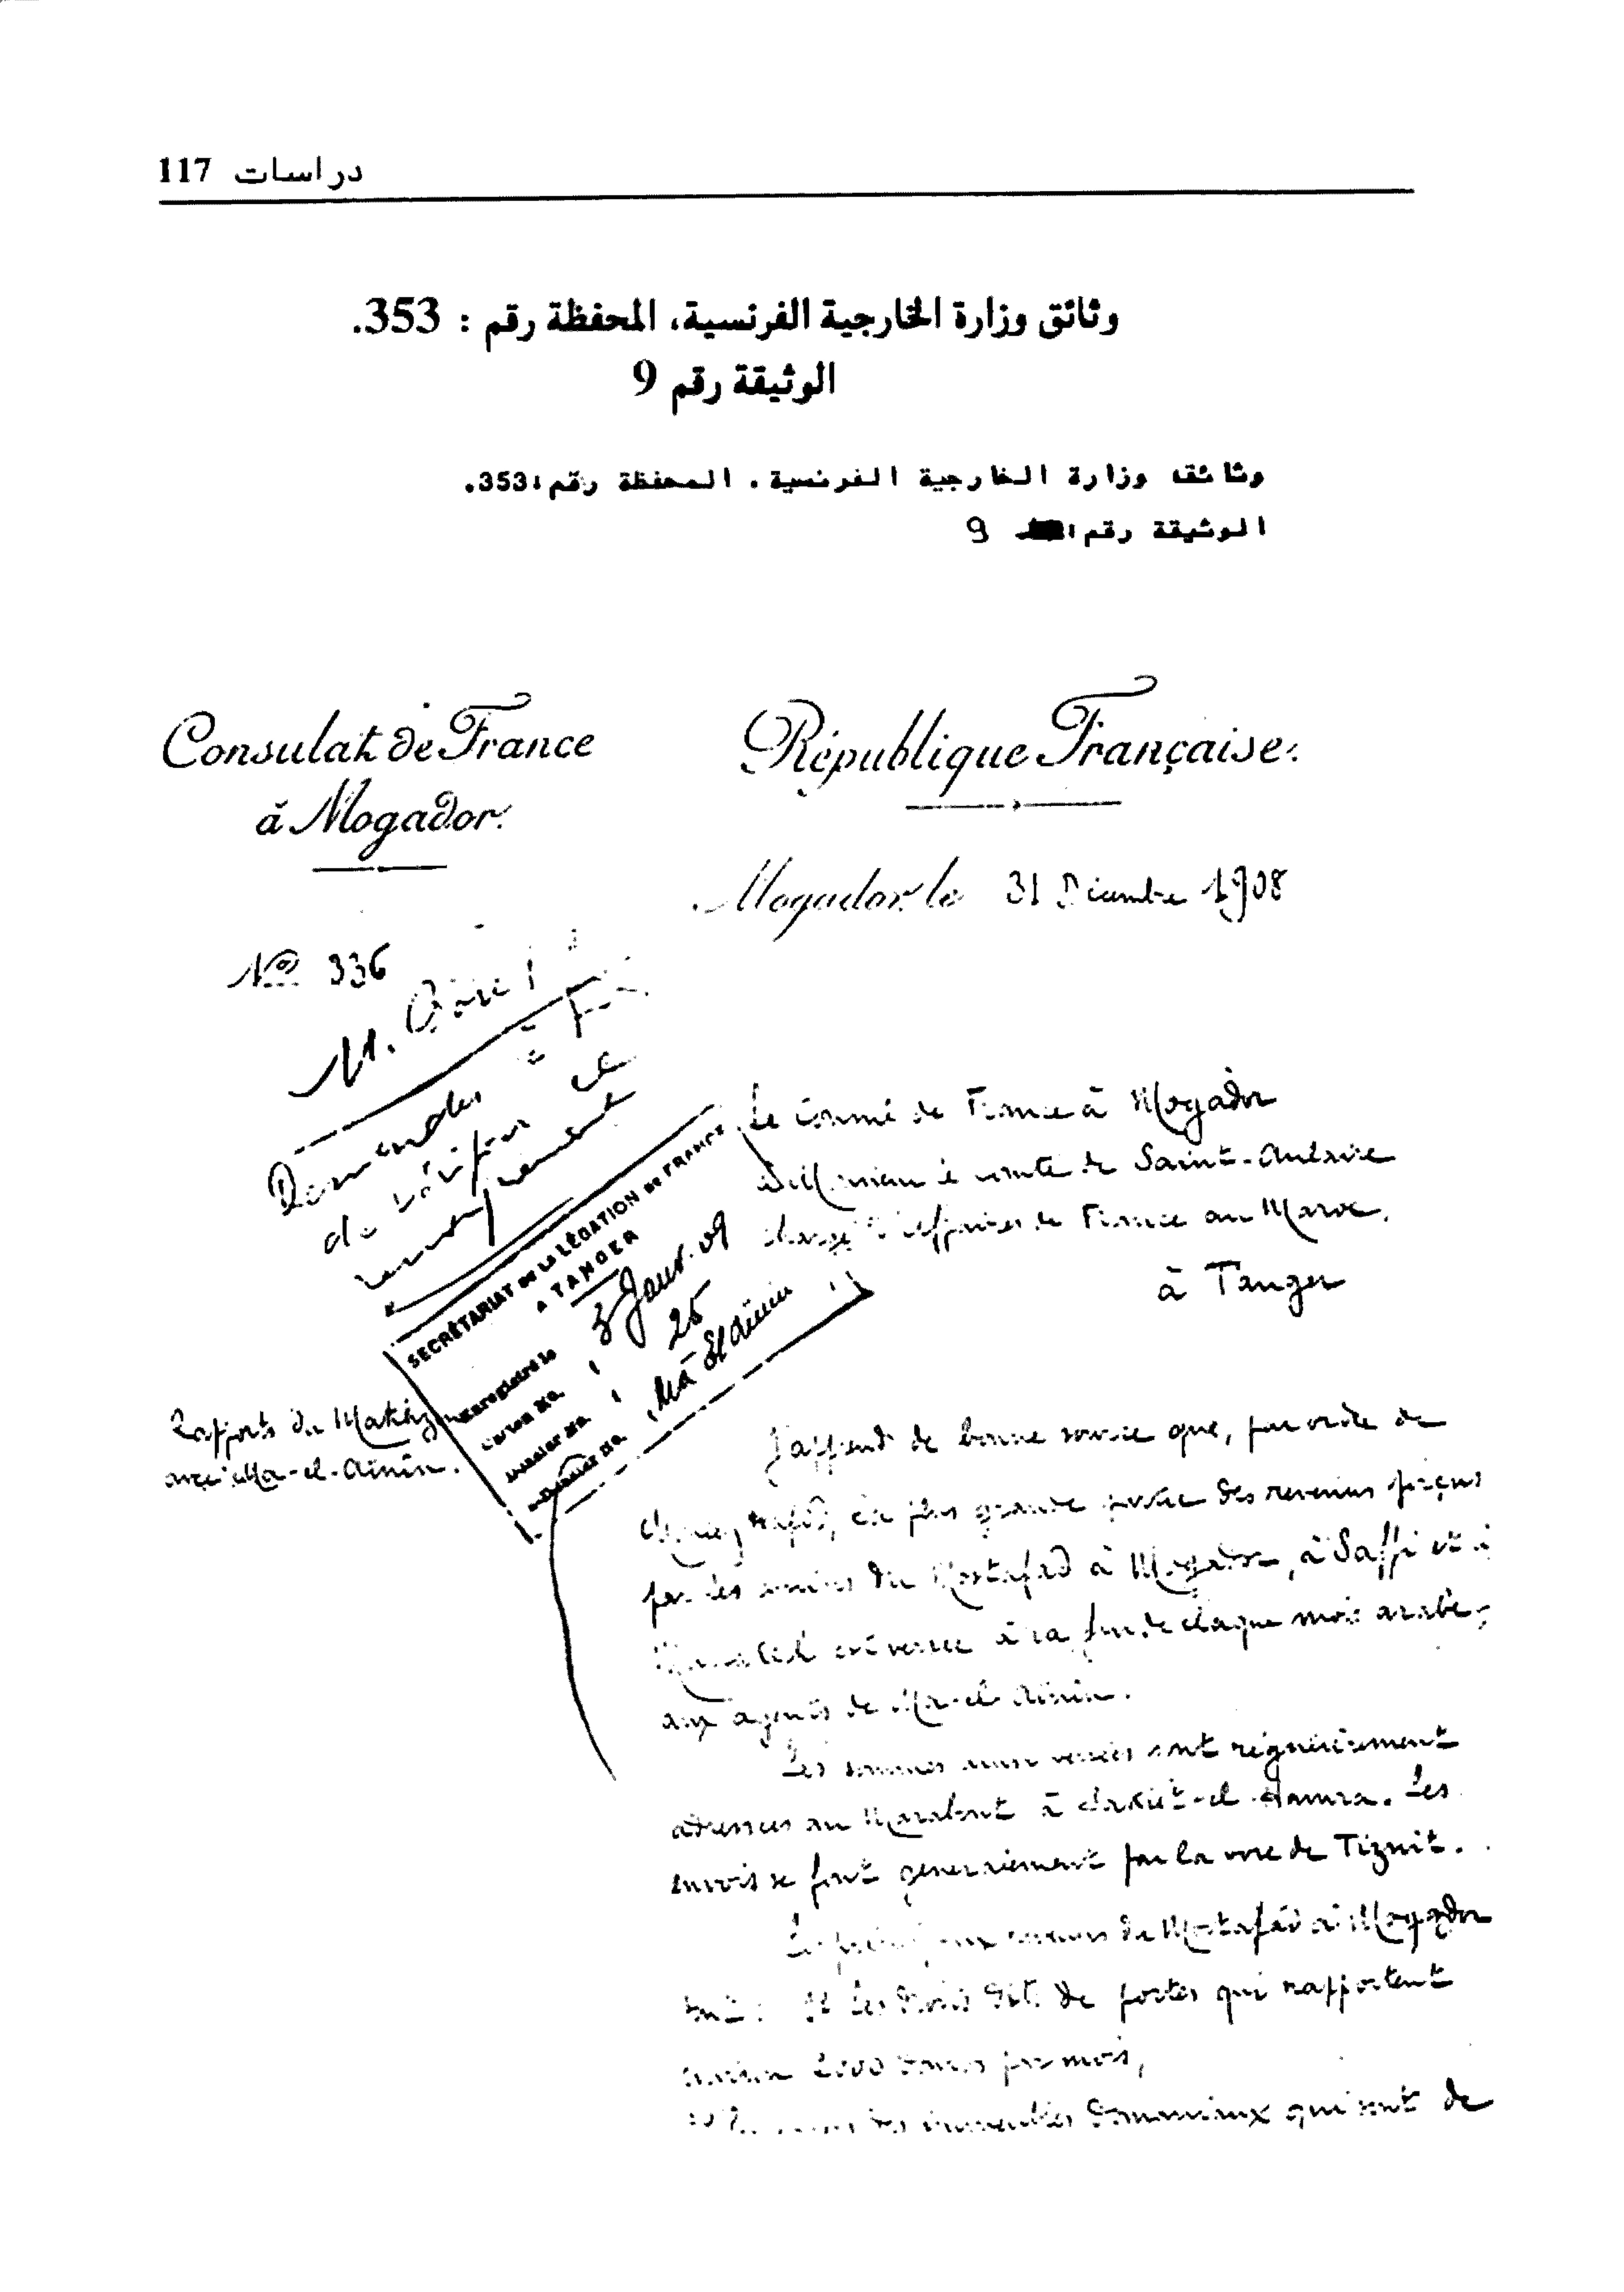 117 دراسات
وثائق وزارة الخارجية الفرنسية، المحفظة رقم : 353.
الوثيقة رقم 9
وثائق وزارة الخارجية الفرنسية . المحفظة رقم :353.
الوثيقة رقم: 9
Consulat de France
à Mogador.
République Française.
Mogador, le 31 Décembre 1908
No 336
M.
Demander
de vérifier ce
renseignement
SECRÉTARIAT DE LA LÉGATION DE FRANCE
A TANGER
Enregistré le 5 Janv. 09
Carton No. 25
Dossier No. Mâ El Aïnin
s-Dossier No.
Le Consul de France à Mogador
à Monsieur le comte de Saint-Aulaire
chargé d'affaires de France au Maroc,
à Tanger
Rapports du Makhzen
avec Ma-el-Aïnin.
J'apprends de bonne source que, par ordre de
Moulay Hafid, la plus grande partie des revenus perçus
par les amins du Mostafad à Mogador, à Saffi et à
est versée à la fin de chaque mois arabe,
aux agents de Ma-el-Aïnin.
Les sommes ainsi versées sont régulièrement
adressées au Marabout à Sakiet-el-Hamra. Les
envois se font généralement par la voie de Tiznit.
Les principaux revenus du Mostafad à Mogador
sont : 1º Les droits dits de portes qui rapportent
environ 2000 douros par mois,
2º des immeubles domaniaux qui sont de